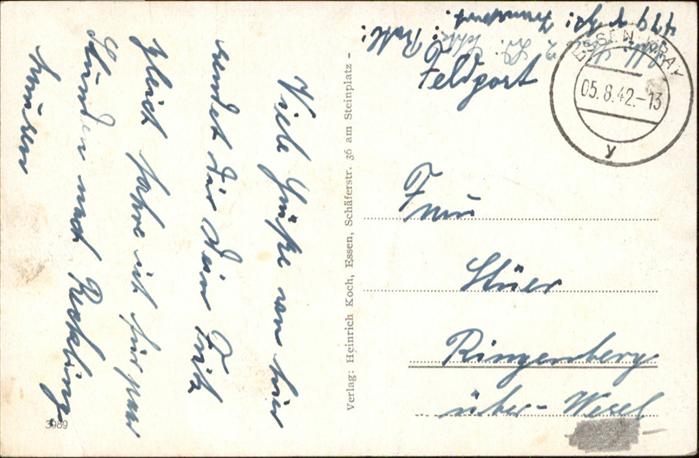 Viele Grüße von hier
sendet dir dein Fritz
Gleich fahre ich für paar
Stunden nach Reckling
hausen
Verlag: Heinrich Koch, Essen, Schäferstr. 36 am Steinplatz -
3989
Feldpost
ESSEN-KRAY
05.8.42.-13
y
Frau
Stüer
Ringenberg
über- Wesel